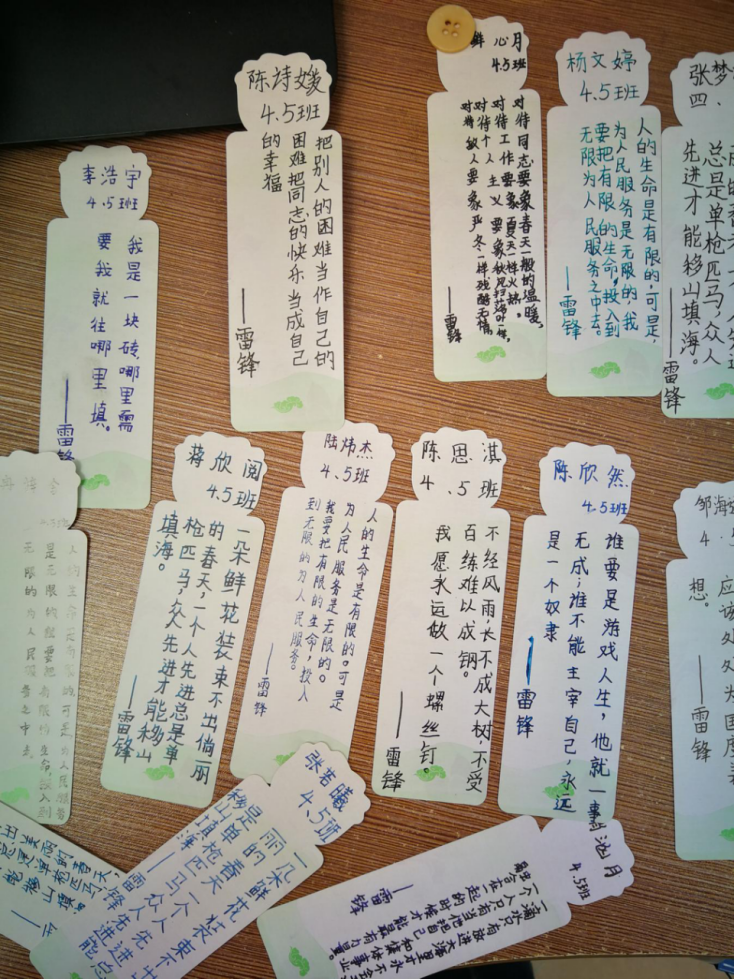 李浩宇
4.5班
我是一块砖,哪里需
要我就往哪里填。
——雷锋
陈诗媛
4.5班
把别人的困难当作自己的
困难把同志的快乐当成自己
的幸福
——雷锋
鲜心月
4.5班
对待同志要象春天一般的温暖,
对待工作要象夏天一样火热。
对待个人主义要象秋风扫落叶一样,
对待敌人要象严冬一样残酷无情。
——雷锋
杨文婷
4.5班
人的生命是有限的,可是,
为人民服务是无限的,我
要把有限的生命,投入到
无限为人民服务之中去。
——雷锋
张梦
四.
总是单枪匹马,众人
先进才能移山填海。
——雷锋
蒋欣阅
4.5班
一朵鲜花装束不出俏丽
的春天,一个人先进总是单
枪匹马,众人先进才能移山
填海。
——雷锋
陆炜杰
4.5班
人的生命是有限的。可是
为人民服务是无限的。
我要把有限的生命,投入
到无限的为人民服务。
——雷锋
陈思淇
4.5班
不经风雨,长不成大树,不受
百练难以成钢。
我愿永远做一个螺丝钉。
——雷锋
陈欣然
4.5班
谁要是游戏人生,他就一事
无成;谁不能主宰自己,永远
是一个奴隶
——雷锋
邹海
4.
应该处处为国
想。
——雷锋
人的生命是有限的,可是为人民服务
是无限的我要把有限的生命,投入到
无限的为人民服务之中去。
张若曦
4.5班
一朵鲜花装束不
丽的春天一个人先进总
是单枪匹马众人先进能
移山填海
——雷锋
出美丽的春天,
总是单枪匹马,
能移山填海。
池月
4.5班
一滴水只有放进大海里才永不会
一个人只有当他把自己和集体事业
融合在一起的时候才能最有力量。
——雷锋